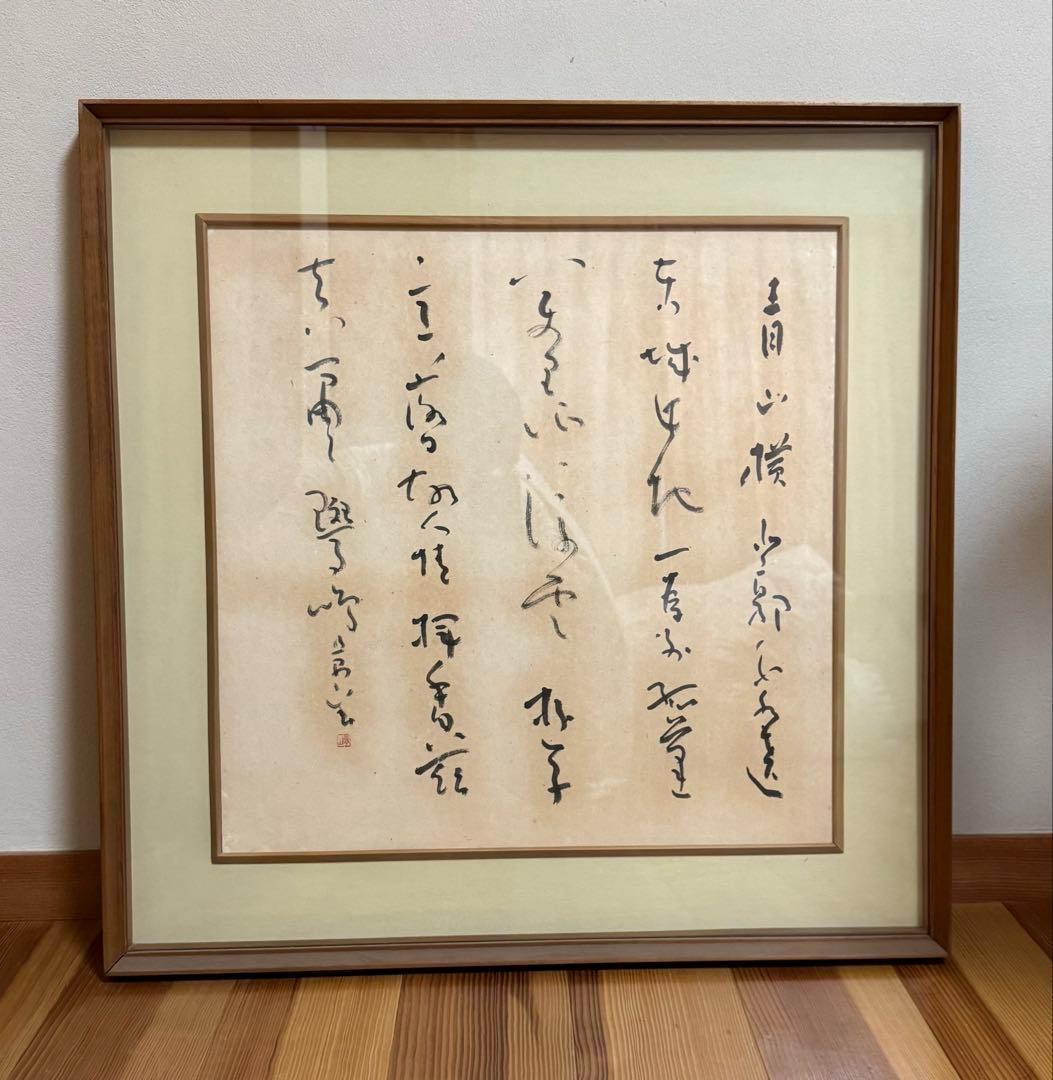 青山横北郭白水遶
東城此地一為別孤蓬
萬里征浮雲遊子
意落日故人情揮手自茲
去蕭〻班馬鳴